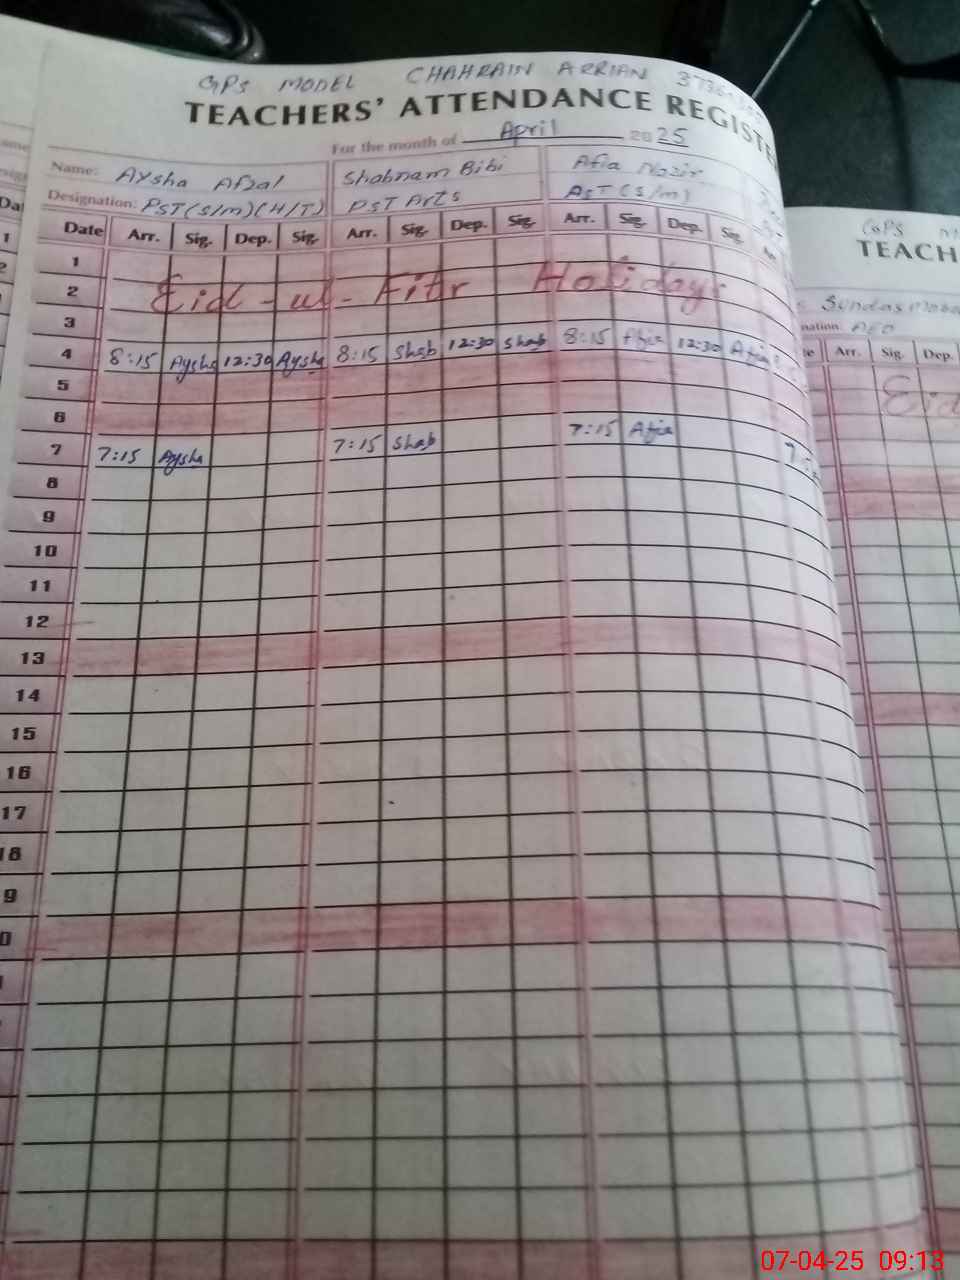 GPS MODEL CHAHRAIN ARRIAN
TEACHERS' ATTENDANCE REGISTE
For the month of April 2025
Name: Aysha Afzal Shabnam Bibi Afia Nazir
Designation: PST(S/M)(H/T) PST Arts PST(S/M)
Date Arr. Sig. Dep. Sig. Arr. Sig. Dep. Sig. Arr. Sig. Dep. Sig. Arr.
1
2 Eid-ul-Fitr Holidays
3
4 8:15 Aysha 12:30 Aysha 8:15 Shab 12:30 Shab 8:15 Afia 12:30 Afia
5
6
7 7:15 Aysha 7:15 Shab 7:15 Afia
8
9
10
11
12
13
14
15
16
17
18
9
0
GPS M
TEACH
Sundas
nation: AEO
te Arr. Sig. Dep.
Eid
1
2
07-04-25 09:13